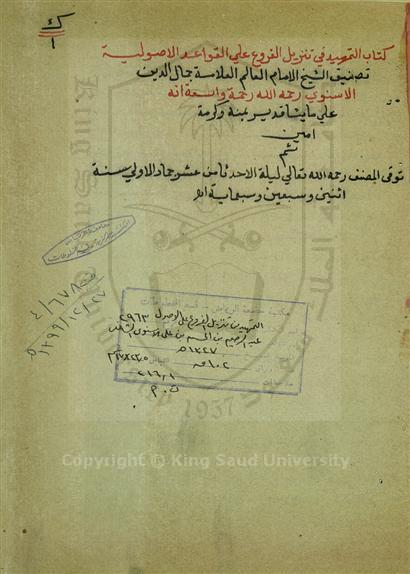 ك
١
كتاب التمهيد في تنزيل الفروع علي القواعد الاصولية
تصنيف الشيخ الامام العالم العلامة جمال الدين
الاسنوي رحمه الله رحمة واسعة انه
علي ما يشا قدير بمنه وكرمة
امين
توفى المصنف رحمه الله تعالي ليلة الاحد ثامن عشر جماد الاولي سنة
اثنين وسبعين وسبعماية اﻫ
٤/٦٧٨
١٣٩٩/١٢/٢٧
مكتبة جامعة الرياض - قسم المخطوطات
التمهيد في تنزيل الفروع على الاصول ٢٩٦٣
عبد الرحيم بن الحسن بن علي الاسنوي الشافعي
١٣٢٧ هـ
١٠٢ ق
٢١٦٫١
ت . م
1957
Copyright © King Saud University